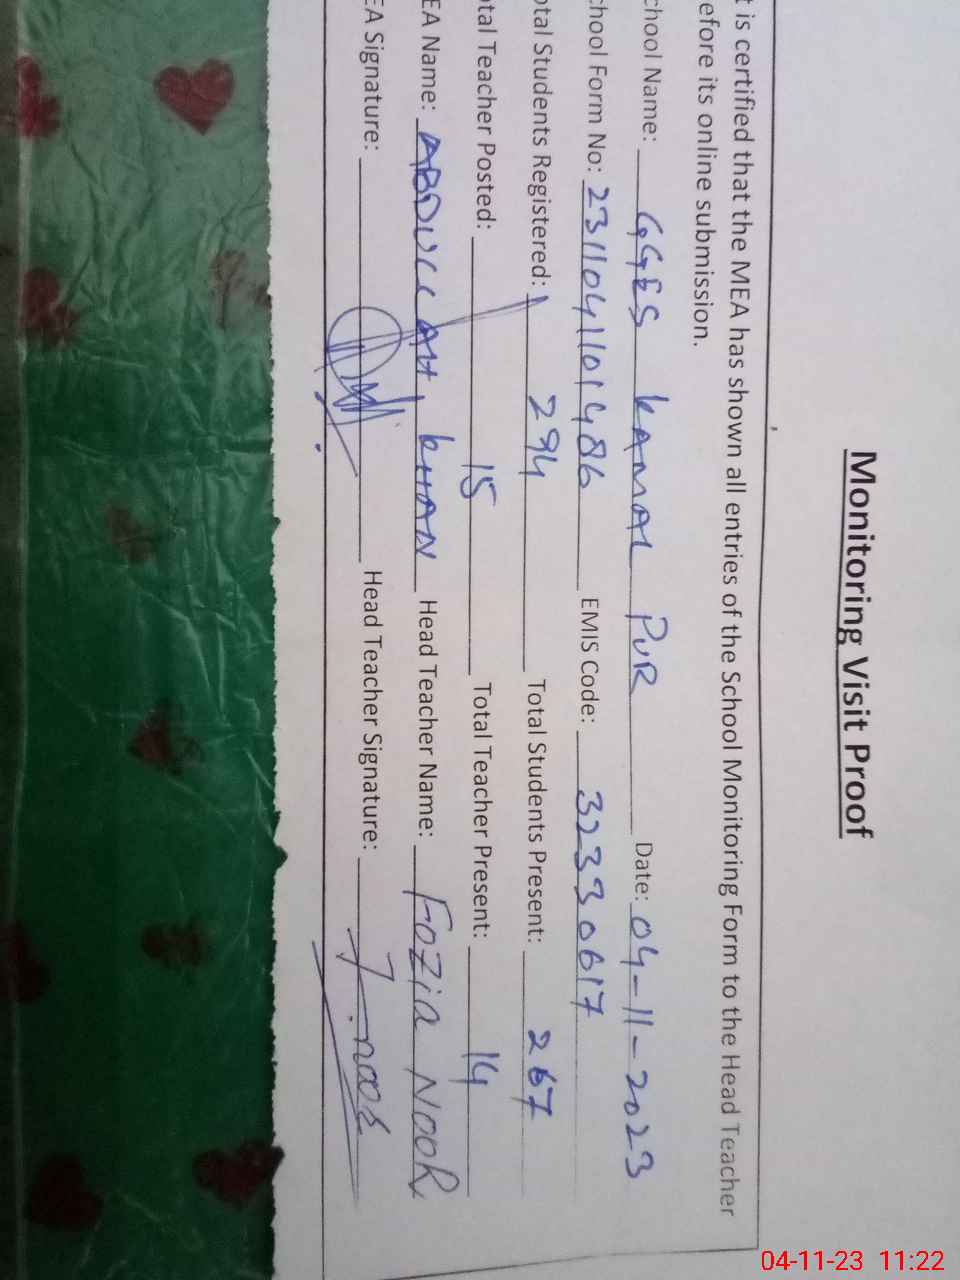 Monitoring Visit Proof
t is certified that the MEA has shown all entries of the School Monitoring Form to the Head Teacher
efore its online submission.
chool Name: GGES KAMAL PUR Date: 04-11-2023
chool Form No: 2311041101486 EMIS Code: 32330617
otal Students Registered: 294 Total Students Present: 267
otal Teacher Posted: 15 Total Teacher Present: 14
EA Name: ABDULLAH KHAN Head Teacher Name: Fozia Noor
EA Signature: Head Teacher Signature:
04-11-23 11:22